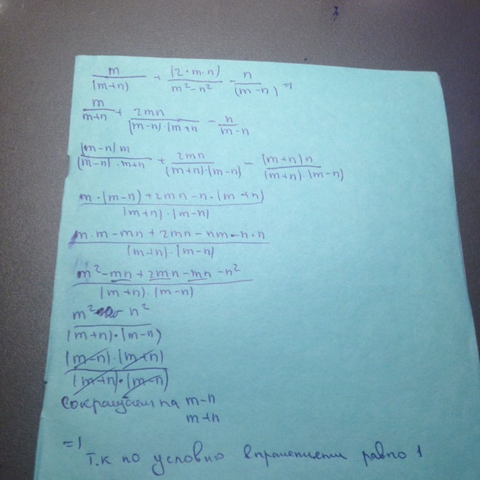 m/(m+n) + (2·m·n)/(m²-n²) - n/(m-n) =
m/(m+n) + 2mn/(m-n)·(m+n - n/(m-n)
(m-n)m/(m-n)·m+n + 2mn/(m+n)·(m-n) - (m+n)n/(m+n)·(m-n)
m·(m-n)+2mn-n·(m+n)/(m+n)·(m-n)
m·m-mn+2mn-nm-n·n/(m+n)·(m-n)
m²-mn+2mn-mn-n²/(m+n)·(m-n)
m² - n²/(m+n)·(m-n)
(m-n)·(m+n)/(m+n)·(m-n)
сокращаем на m-n
m+n
=1
Т.к по условию равно 1